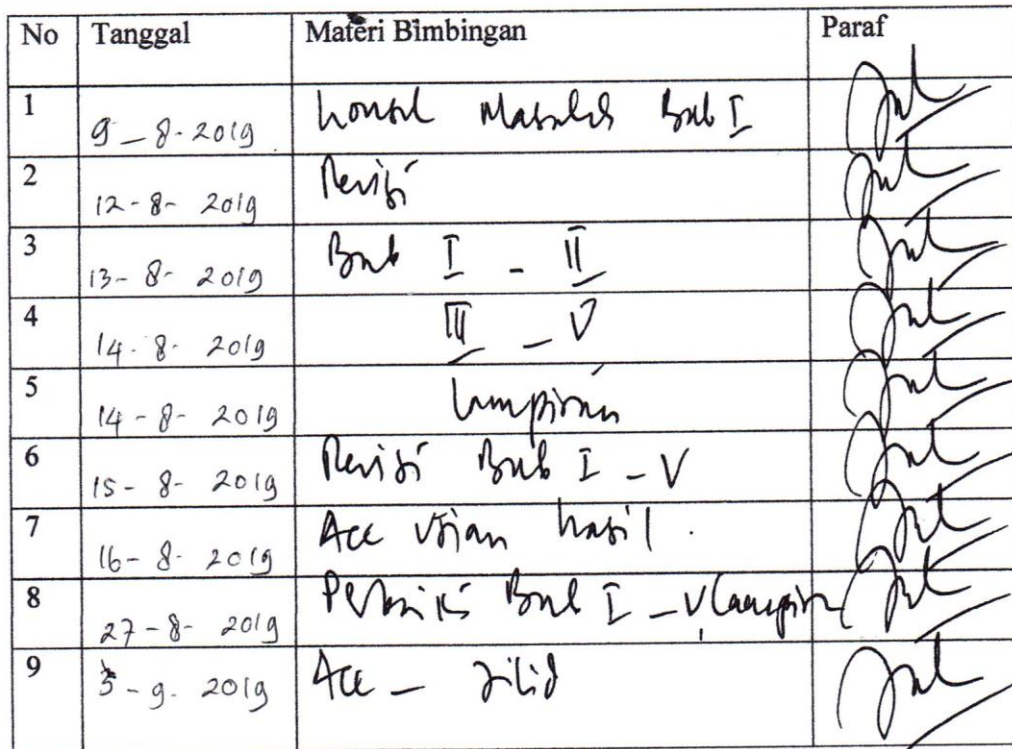 No Tanggal Materi Bimbingan Paraf
1 9-8-2019 Konsul Masalah Bab I
2 12-8-2019 Revisi
3 13-8-2019 Bab I - II
4 14-8-2019 III - V
5 14-8-2019 Lampiran
6 15-8-2019 Revisi Bab I - V
7 16-8-2019 Acc Ujian hasil.
8 27-8-2019 Perbaiki Bab I - V Lampiran
9 3-9-2019 Acc - Jilid